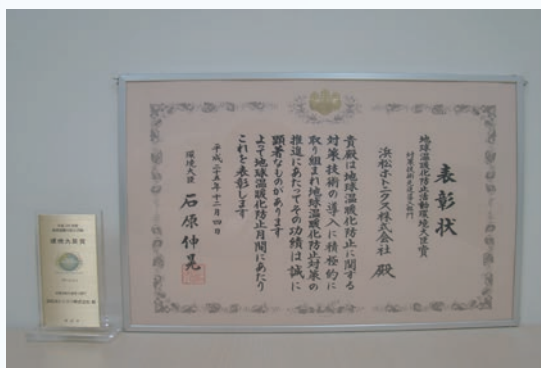 表彰状
地球温暖化防止活動環境大臣賞
対策技術先進導入部門
浜松ホトニクス株式会社 殿
貴殿は地球温暖化防止に関する
対策技術の導入に積極的に
取り組まれ地球温暖化防止対策の
推進にあたってその功績は誠に
顕著なものがあります
よって地球温暖化防止月間にあたり
これを表彰します
平成二十五年十二月四日
環境大臣 石原伸晃
環境大臣賞